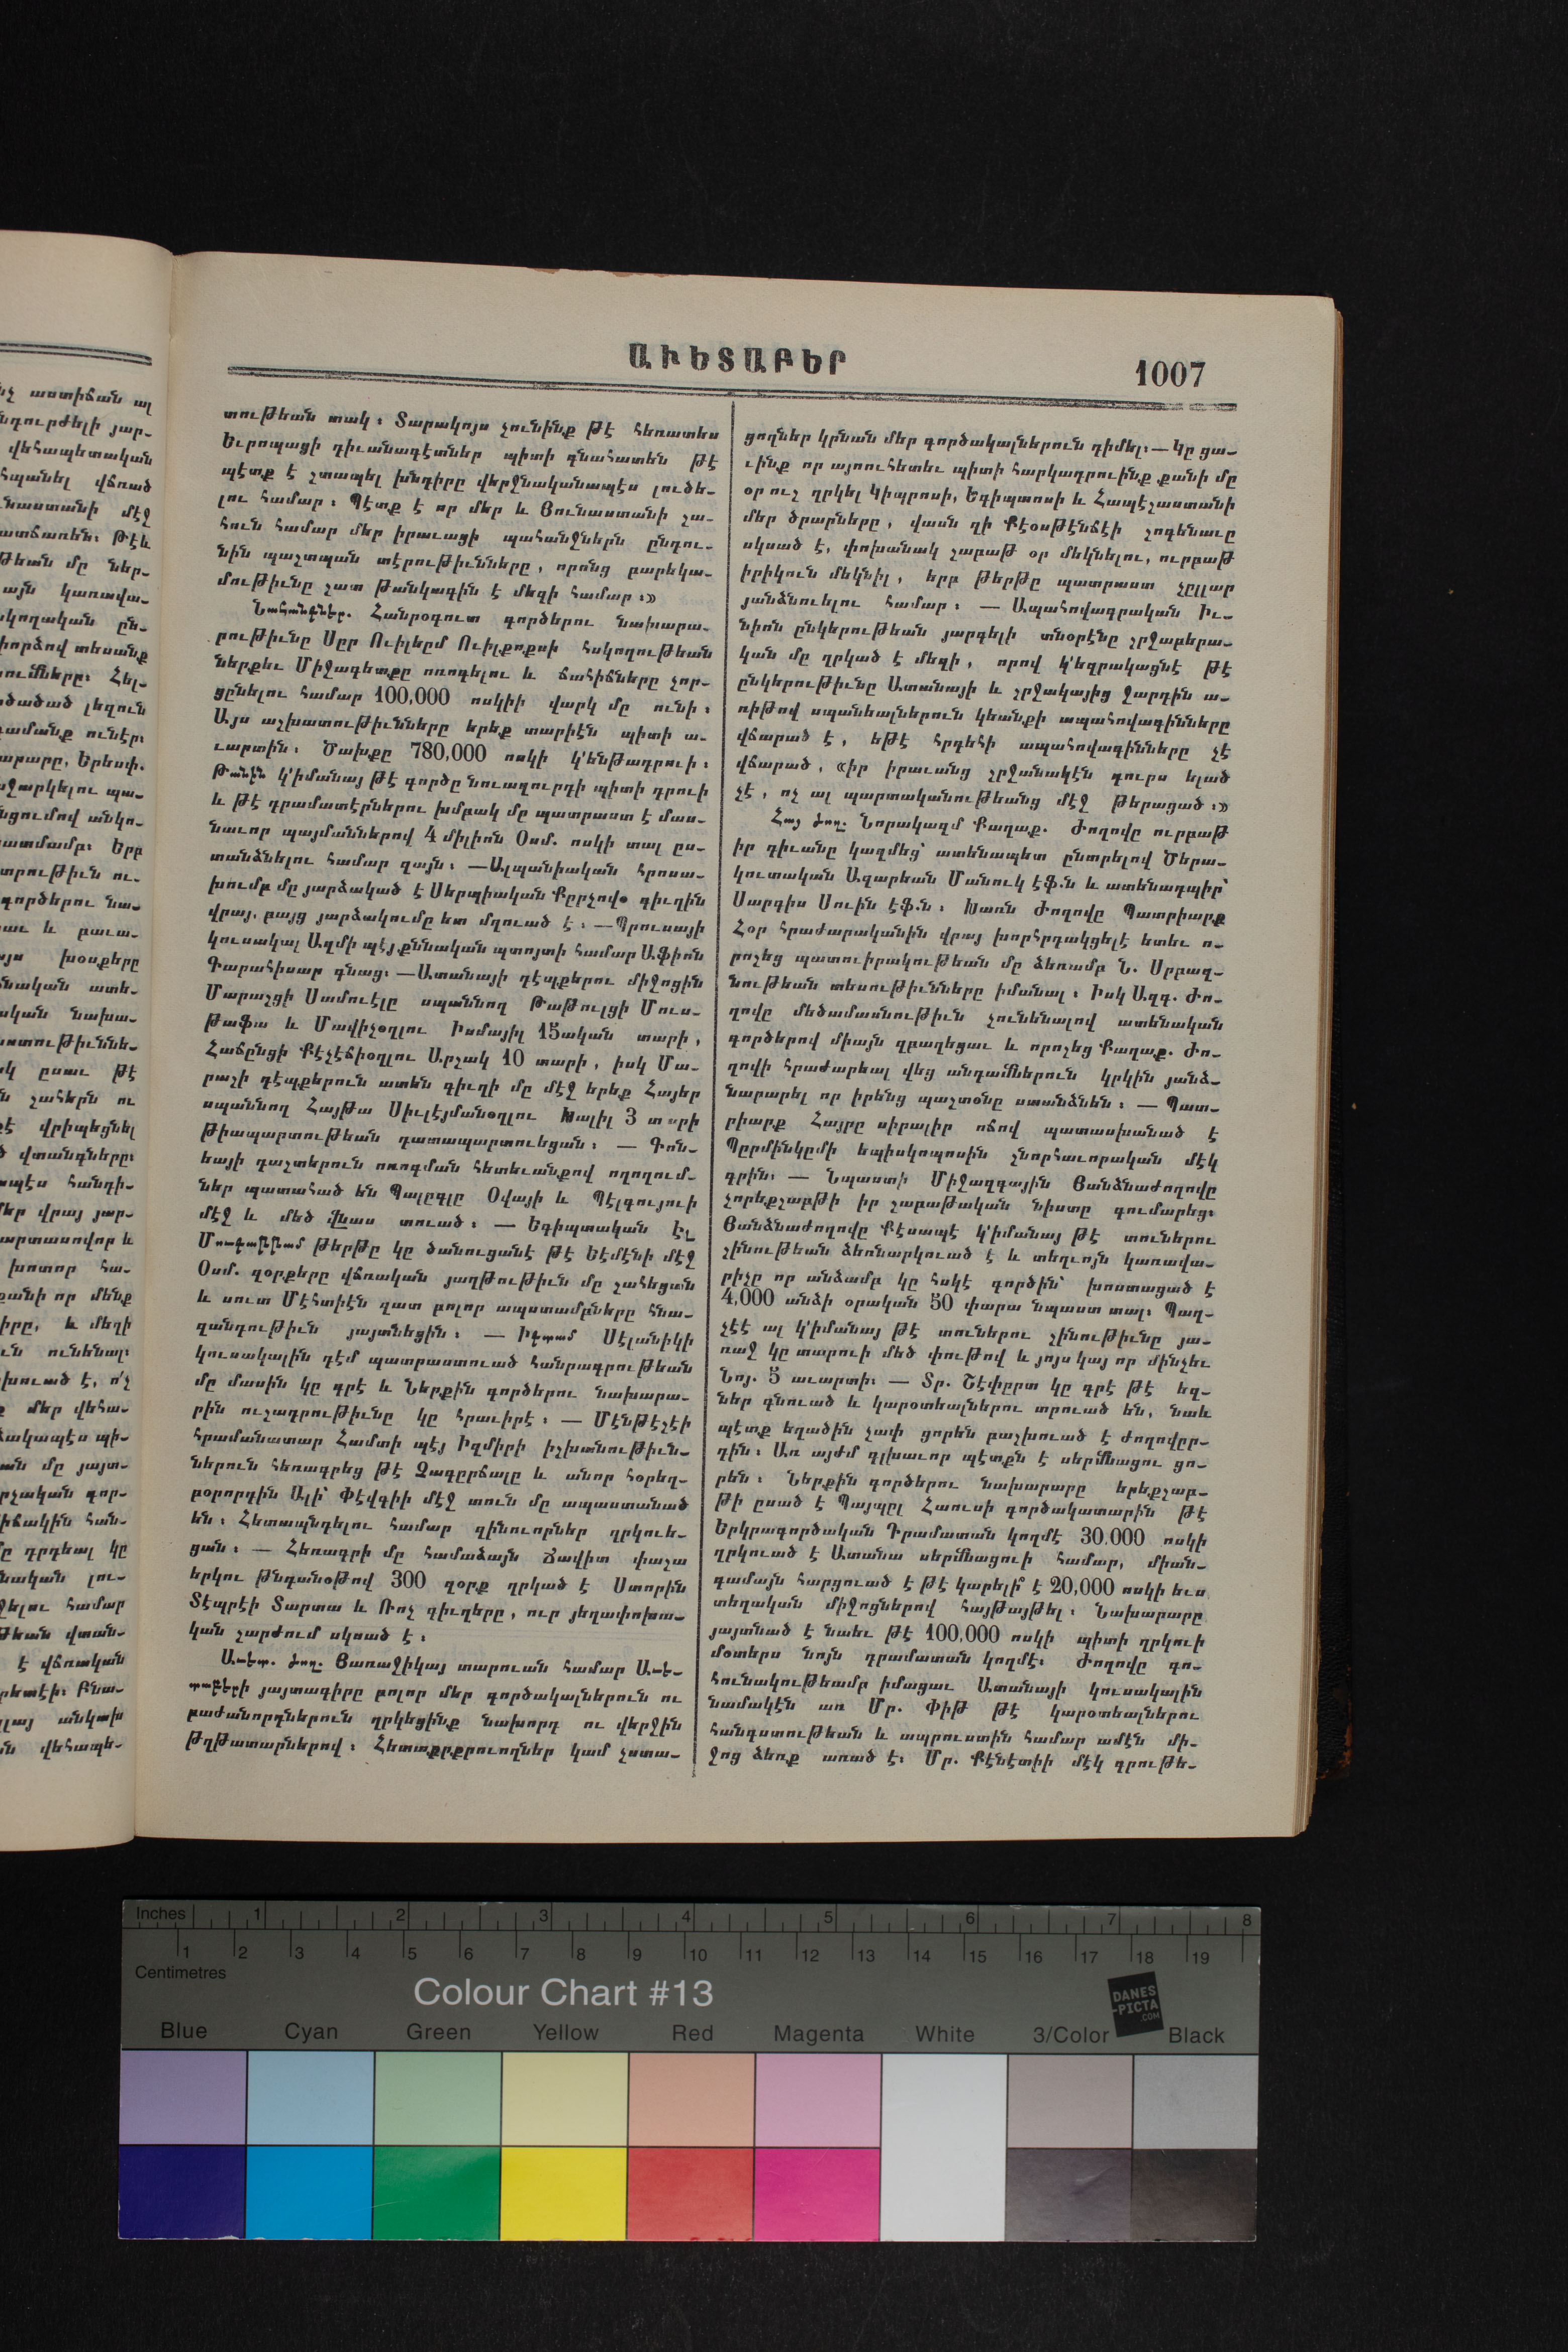 ԱՒԵՏԱԲԵՐ
1007
տութեան տակ։ Տարակոյս չունինք թէ հեռատես
Եւրոպացի դիւանագէտներ պիտի գնահատեն թէ
պէտք է չտապել խնդիրը վերջնականապէս լուծե-
լու համար։ Պէտք է որ մեր և Յունաստանի շա-
հուն համար մեր իրաւացի պահանջներն ընդու-
նին պաշտպան տէրութիւնները, որոնց բարեկա-
մութիւնը շատ թանկագին է մեզի համար։»
Նահանգները. Հանրօգուտ գործերու նախարա-
րութիւնը Սըր Ուիլեըմ Ուիլքոքսի հսկողութեան
ներքեւ Միջագետքը ոռոգելու և ճահիճները չոր-
ցընելու համար 100,000 ոսկիի վարկ մը ունի։
Այս աշխատութիւնները երեք տարիէն պիտի ա-
ւարտին։ Ծախքը 780,000 ոսկի կ'ենթադրուի։
Թանին կ'իմանայ թէ գործը նուազուրդի պիտի դրուի
և թէ դրամատէրներու խմբակ մը պատրաստ է մաս-
նաւոր պայմաններով 4 միլիոն Օսմ. ոսկի տալ ըս-
տանձնելու համար զայն։ —Ալպանիական հրոսա-
խումբ մը յարձակած է Սերպիական Քըրչովօ գիւղին
վրայ, բայց յարձակումը ետ մղուած է։ —Պրուսայի
կուսակալ Ազմի պէյ քննական պտոյտի համար Աֆիոն
Գարահիսար գնաց։ —Ատանայի դէպքերու միջոցին
Մարաշցի Սամուէլը սպաննող Թաթուլցի Մուս-
թաֆա և Մավիշօղլու Իսմայիլ 15ական տարի,
Հաճընցի Քէչէճիօղլու Արշակ 10 տարի, իսկ Մա-
րաշի դէպքերուն ատեն գիւղի մը մէջ երեք Հայեր
սպաննող Հայթա Սիւլէյմանօղլու Խալիլ 3 տարի
թիապարտութեան դատապարտուեցան։ — Գոն-
եայի դաշտերուն ոռոգման հետեւանքով ողողում-
ներ պատահած են Պալըգլը Օվայի և Պէլգույուի
մէջ և մեծ վնաս տուած։ — Եգիպտական Էլ
Մուգաթթամ թերթը կը ծանուցանէ թէ Եէմէնի մէջ
Օսմ. զօրքերը վճռական յաղթութիւն մը շահեցան
և սուտ Մէհտիէն զատ բոլոր ապստամբները հնա-
զանդութիւն յայտնեցին։ — Իգտամ Սէլանիկի
կուսակալին դէմ պատրաստուած հանրագրութեան
մը մասին կը գրէ և Ներքին գործերու նախարա-
րին ուշադրութիւնը կը հրաւիրէ։ — Մէնթէշէի
հրամանատար Համտի պէյ Իզմիրի իշխանութիւն-
ներուն հեռագրեց թէ Չագըրճալը և անոր հօրեղ-
բօրորդին Ալի՝ Փէվգիի մէջ տուն մը ապաստանած
են։ Հետապնդելու համար զինուորներ ղրկուե-
ցան։ — Հեռագրի մը համաձայն Ճավիտ փաշա
երկու թնդանօթով 300 զօրք ղրկած է Ստորին
Տէպրէի Տարտա և Ռոչ գիւղերը, ուր յեղափոխա-
կան շարժում սկսած է։
Աւետ. ժող. Յառաջիկայ տարուան համար Աւե-
տաբերի յայտագիրը բոլոր մեր գործակալներուն ու
բաժանորդներուն ղրկեցինք նախորդ ու վերջին
թղթատարներով։ Հետաքրքրուողներ կամ չստա-
ցողներ կրնան մեր գործակալներուն դիմել։— Կը ցա-
ւինք որ այսուհետեւ պիտի հարկադրուինք քանի մը
օր ուշ ղրկել Կիպրոսի, Եգիպտոսի և Հապէշաստանի
մեր ծրարները, վասն զի Քէօսթէնճէի շոգենաւը
սկսած է, փոխանակ շաբաթ օր մեկնելու, ուրբաթ
իրիկուն մեկնիլ, երբ թերթը պատրաստ չըլլար
յանձնուելու համար։ — Ապահովագրական Իւ-
նիոն ընկերութեան յարգելի տնօրէնը շրջաբերա-
կան մը ղրկած է մեզի, որով կ'եզրակացնէ թէ
ընկերութիւնը Ատանայի և շրջակայից ջարդին ա-
ռիթով սպանեալներուն կեանքի ապահովագինները
վճարած է, եթէ հրդեհի ապահովագինները չէ
վճարած, «իր իրաւանց շրջանակէն դուրս ելած
չէ, ոչ ալ պարտականութեանց մէջ թերացած։»
Հայ ժող. Նորակազմ Քաղաք. Ժողովը ուրբաթ
իր դիւանը կազմեց՝ ատենապետ ընտրելով Ծերա-
կուտական Ազարեան Մանուկ էֆ.ն և ատենադպիր՝
Սարգիս Սուին էֆ.ն։ Խառն Ժողովը Պատրիարք
Հօր հրաժարականին վրայ խորհրդակցելէ ետեւ ո-
րոշեց պատուիրակութեան մը ձեռամբ Ն. Սրբազ-
նութեան տեսութիւնները իմանալ։ Իսկ Ազգ. Ժո-
ղովը մեծամասնութիւն չունենալով ատենական
գործերով միայն զբաղեցաւ և որոշեց Քաղաք. Ժո-
ղովի հրաժարեալ վեց անդամներուն կրկին յանձ-
նարարել որ իրենց պաշտօնը ստանձնեն։ — Պատ-
րիարք Հայրը սիրալիր ոճով պատասխանած է
Պըրմինկըմի եպիսկոպոսին շնորհաւորական մէկ
գրին։ — Նպաստի Միջազգային Յանձնաժողովը
չորեքշաբթի իր շաբաթական նիստը գումարեց։
Յանձնաժողովը Քէսապէ կ'իմանայ թէ տուներու
շինութեան ձեռնարկուած է և տեղւոյն կառավա-
րիչը որ անձամբ կը հսկէ գործին՝ խոստացած է
4,000 անձի օրական 50 փարա նպաստ տալ։ Պաղ-
չէէ ալ կ'իմանայ թէ տուներու շինութիւնը յա-
ռաջ կը տարուի մեծ փութով և յոյս կայ որ մինչեւ
Նոյ. 5 աւարտի։ — Տր. Շէփըրտ կը գրէ թէ եզ-
ներ գնուած և կարօտեալներու տրուած են, նաև
պէտք եղածին չափ ցորեն բաշխուած է ժողովըր-
դին։ Առ այժմ գլխաւոր պէտքն է սերմնացու ցո-
րեն։ Ներքին գործերու նախարարը երեքշաբ-
թի ըսած է Պայպըլ Հաուսի գործակատարին թէ
Երկրագործական Դրամատան կողմէ 30.000 ոսկի
ղրկուած է Ատանա սերմնացուի համար, միան-
գամայն հարցուած է թէ կարելի՞ է 20,000 ոսկի ևս
տեղական միջոցներով հայթայթել։ Նախարարը
յայտնած է նաեւ թէ 100,000 ոսկի պիտի ղրկուի
մօտերս նոյն դրամատան կողմէ։ Ժողովը գո-
հունակութեամբ իմացաւ Ատանայի կուսակալին
նամակէն առ Մր. Փիթ թէ կարօտեալներու
հանգստութեան և ապրուստին համար ամէն մի-
ջոց ձեռք առած է։ Մր. Քէնէտիի մէկ գրութե-
Inches 1 2 3 4 5 6 7 8
1 2 3 4 5 6 7 8 9 10 11 12 13 14 15 16 17 18 19
Centimetres
Colour Chart #13
DANES
-PICTA
.COM
Blue Cyan Green Yellow Red Magenta White 3/Color Black